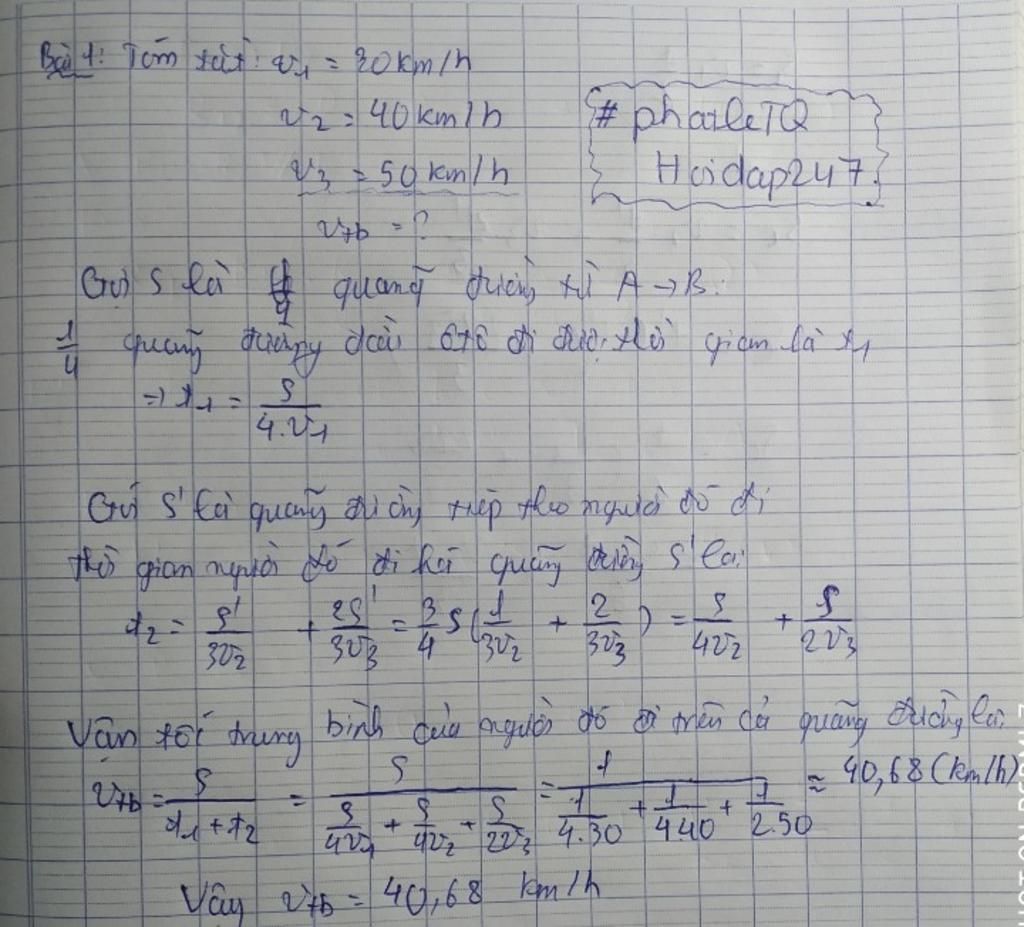 Bài 1: Tóm tắt: v₁ = 30 km/h
v₂ = 40 km/h
v₃ = 50 km/h
# phaileTQ
Hoidap247.
vtb = ?
Gọi S là quãng đường từ A → B.
1/4 quãng đường đầu ôtô đi được thời gian là t₁
=> t₁ = S/(4.v₁)
Gọi S' là quãng đường tiếp theo người đó đi
thời gian người đó đi hết quãng đường S' là:
t₂ = S'/(3v₂) + 2S'/(3v₃) = 3/4 S (1/(3v₂) + 2/(3v₃)) = S/(4v₂) + S/(2v₃)
Vận tốc trung bình của người đó đi trên cả quãng đường là:
vtb = S/(t₁ + t₂) = S/(S/(4v₁) + S/(4v₂) + S/(2v₃)) = 1/(1/(4.30) + 1/(4.40) + 1/(2.50)) ≈ 40,68 (km/h)
Vậy vtb = 40,68 km/h